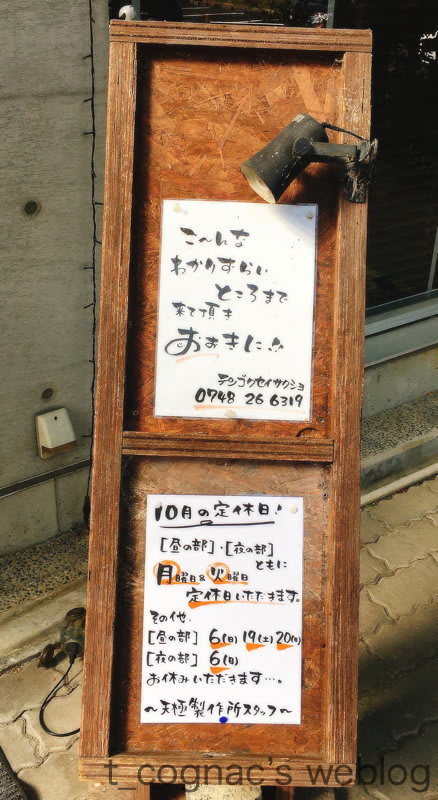 こ〜んな
わかりずらい
ところまで
来て頂き
おおきに!!
テンゴクセイサクショ
0748 26 6319
10月の定休日!
[昼の部]・[夜の部]
ともに
月曜日&火曜日
定休日いただきます。
その他、
[昼の部] 6(日) 19(土) 20(日)
[夜の部] 6(日)
お休みいただきます…。
〜天極製作所スタッフ〜
t_cognac's weblog